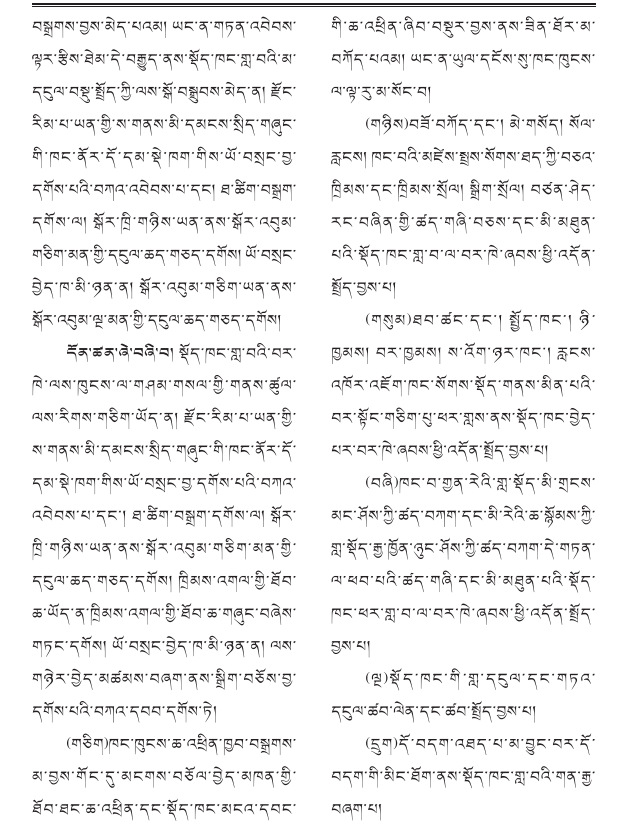 བསྒྲགས་བྱས་མེད་པའམ། ཡང་ན་གཏན་འབེབས་
ལྟར་རྩིས་ཐེམ་དེ་བརྒྱུད་ནས་སྡོད་ཁང་གླ་བའི་མ་
དངུལ་བསྡུ་སྤྲོད་ཀྱི་ལས་སྒོ་བསྒྲུབས་མེད་ན། རྫོང་
རིམ་པ་ཡན་གྱི་ས་གནས་མི་དམངས་སྲིད་གཞུང་
གི་ཁང་ནོར་དོ་དམ་སྡེ་ཁག་གིས་ཡོ་བསྲང་བྱ་
དགོས་པའི་བཀའ་འབེབས་པ་དང། ཐ་ཚིག་བསྒྲག་
དགོས་ལ། སྒོར་ཁྲི་གཉིས་ཡན་ནས་སྒོར་འབུམ་
གཅིག་མན་གྱི་དངུལ་ཆད་གཅད་དགོས། ཡོ་བསྲང་
བྱེད་ཁ་མི་ཉན་ན། སྒོར་འབུམ་གཅིག་ཡན་ནས་
སྒོར་འབུམ་ལྔ་མན་གྱི་དངུལ་ཆད་གཅད་དགོས།
དོན་ཚན་ཞེ་བཞི་བ། སྡོད་ཁང་གླ་བའི་བར་
ཁེ་ལས་ཁུངས་ལ་གཤམ་གསལ་གྱི་གནས་ཚུལ་
ལས་རིགས་གཅིག་ཡོད་ན། རྫོང་རིམ་པ་ཡན་གྱི་
ས་གནས་མི་དམངས་སྲིད་གཞུང་གི་ཁང་ནོར་དོ་
དམ་སྡེ་ཁག་གིས་ཡོ་བསྲང་བྱ་དགོས་པའི་བཀའ་
འབེབས་པ་དང་། ཐ་ཚིག་བསྒྲག་དགོས་ལ། སྒོར་
ཁྲི་གཉིས་ཡན་ནས་སྒོར་འབུམ་གཅིག་མན་གྱི་
དངུལ་ཆད་གཅད་དགོས། ཁྲིམས་འགལ་གྱི་ཐོབ་
ཆ་ཡོད་ན་ཁྲིམས་འགལ་གྱི་ཐོབ་ཆ་གཞུང་བཞེས་
གཏང་དགོས། ཡོ་བསྲང་བྱེད་ཁ་མི་ཉན་ན། ལས་
གཉེར་བྱེད་མཚམས་བཞག་ནས་སྒྲིག་བཅོས་བྱ་
དགོས་པའི་བཀའ་དབབ་དགོས་ཏེ།
(གཅིག)ཁང་ཁུངས་ཆ་འཕྲིན་ཁྱབ་བསྒྲགས་
མ་བྱས་གོང་དུ་མངགས་བཅོལ་བྱེད་མཁན་གྱི་
ཐོབ་ཐང་ཆ་འཕྲིན་དང་སྡོད་ཁང་མངའ་དབང་
གི་ཆ་འཕྲིན་ཞིབ་བསྡུར་བྱས་ནས་ཟིན་ཐོར་མ་
བཀོད་པའམ། ཡང་ན་ཡུལ་དངོས་སུ་ཁང་ཁུངས་
ལ་ལྟ་རུ་མ་སོང་བ།
(གཉིས)བཟོ་བཀོད་དང་། མེ་གསོད། སོལ་
རླངས། ཁང་བའི་མཛེས་སྤྲས་སོགས་ཐད་ཀྱི་བཅའ་
ཁྲིམས་དང་ཁྲིམས་སྲོལ། སྒྲིག་སྲོལ། བཙན་ཤེད་
རང་བཞིན་གྱི་ཚད་གཞི་བཅས་དང་མི་མཐུན་
པའི་སྡོད་ཁང་གླ་བ་ལ་བར་ཁེ་ཞབས་ཕྱི་འདོན་
སྤྲོད་བྱས་པ།
(གསུམ)ཐབ་ཚང་དང་། སྤྱོད་ཁང་། ཉི་
ཁྱམས། བར་ཁྱམས། ས་འོག་ཉར་ཁང་། རླངས་
འཁོར་འཇོག་ཁང་སོགས་སྡོད་གནས་མིན་པའི་
བར་སྟོང་གཅིག་པུ་ཕར་གླས་ནས་སྡོད་ཁང་བྱེད་
པར་བར་ཁེ་ཞབས་ཕྱི་འདོན་སྤྲོད་བྱས་པ།
(བཞི)ཁང་བ་གྱན་རེའི་གླ་སྡོད་མི་གྲངས་
མང་ཤོས་ཀྱི་ཚད་བཀག་དང་མི་རེའི་ཆ་སྙོམས་ཀྱི་
གླ་སྡོད་རྒྱ་ཁྱོན་ཉུང་ཤོས་ཀྱི་ཚད་བཀག་དེ་གཏན་
ལ་ཕབ་པའི་ཚད་གཞི་དང་མི་མཐུན་པའི་སྡོད་
ཁང་ཕར་གླ་བ་ལ་བར་ཁེ་ཞབས་ཕྱི་འདོན་སྤྲོད་
བྱས་པ།
(ལྔ)སྡོད་ཁང་གི་གླ་དངུལ་དང་གཏའ་
དངུལ་ཚབ་ལེན་དང་ཚབ་སྤྲོད་བྱས་པ།
(དྲུག)དོ་བདག་འཐད་པ་མ་བྱུང་བར་དོ་
བདག་གི་མིང་ཐོག་ནས་སྡོད་ཁང་གླ་བའི་གན་རྒྱ་
བཞག་པ།